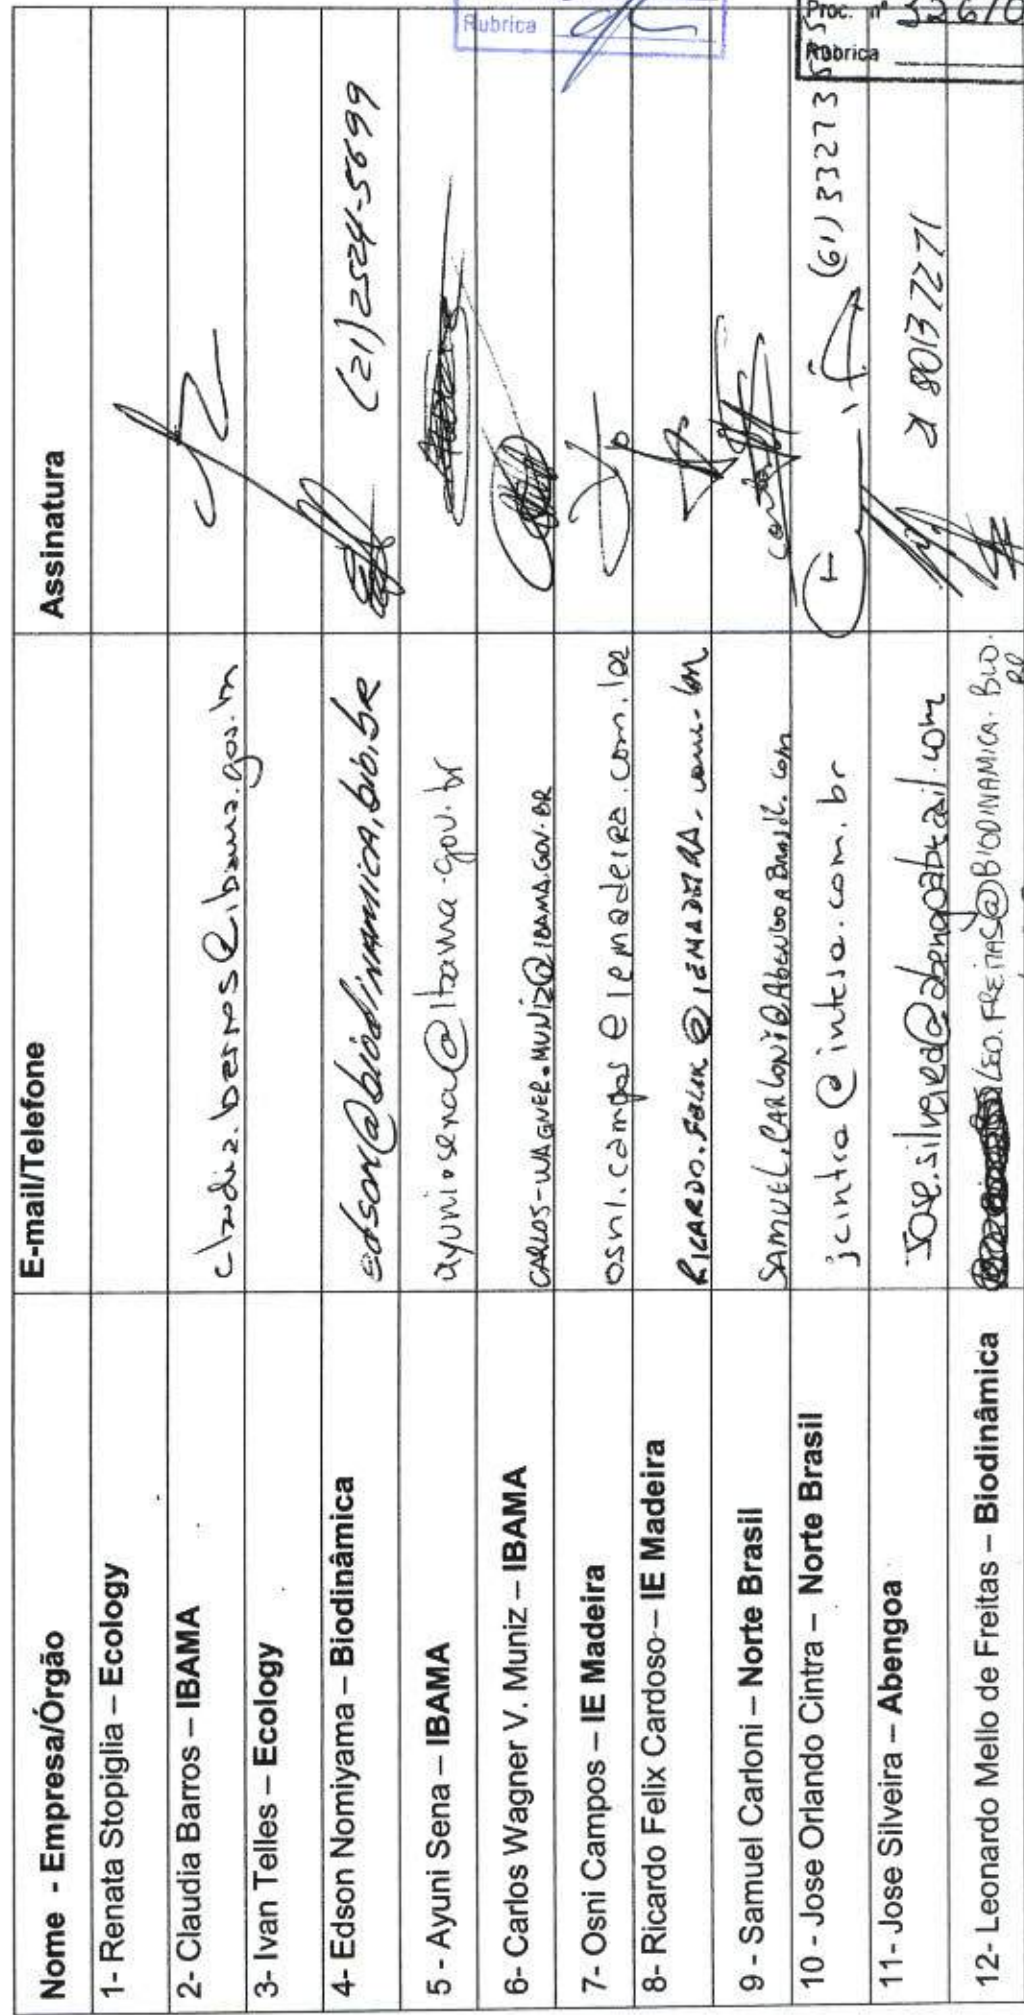 Nome - Empresa/Órgão E-mail/Telefone Assinatura
1- Renata Stopiglia – Ecology
2- Claudia Barros – IBAMA claudia.barros@ibama.gov.br
3- Ivan Telles – Ecology
4- Edson Nomiyama – Biodinâmica edson@biodinamica.bio.br (21)2524-5699
5 - Ayuni Sena – IBAMA ayuni.sena@ibama.gov.br
6- Carlos Wagner V. Muniz – IBAMA CARLOS-WAGNER.MUNIZ@IBAMA.GOV.BR
7- Osni Campos – IE Madeira osni.campos@iemadeira.com.br
8- Ricardo Felix Cardoso – IE Madeira RICARDO.FELIX@IEMADEIRA.com.br
9 - Samuel Carloni – Norte Brasil SAMUEL.CARLONI@ABENGOABrasil.com
10 - Jose Orlando Cintra – Norte Brasil jcintra@intesa.com.br (61) 33273
11- Jose Silveira – Abengoa Jose.silveira@abengoabrasil.com 21 80137271
12- Leonardo Mello de Freitas – Biodinâmica LEO.FREITAS@BIODINAMICA.BIO.BR
Rubrica
Proc. nº
Rubrica